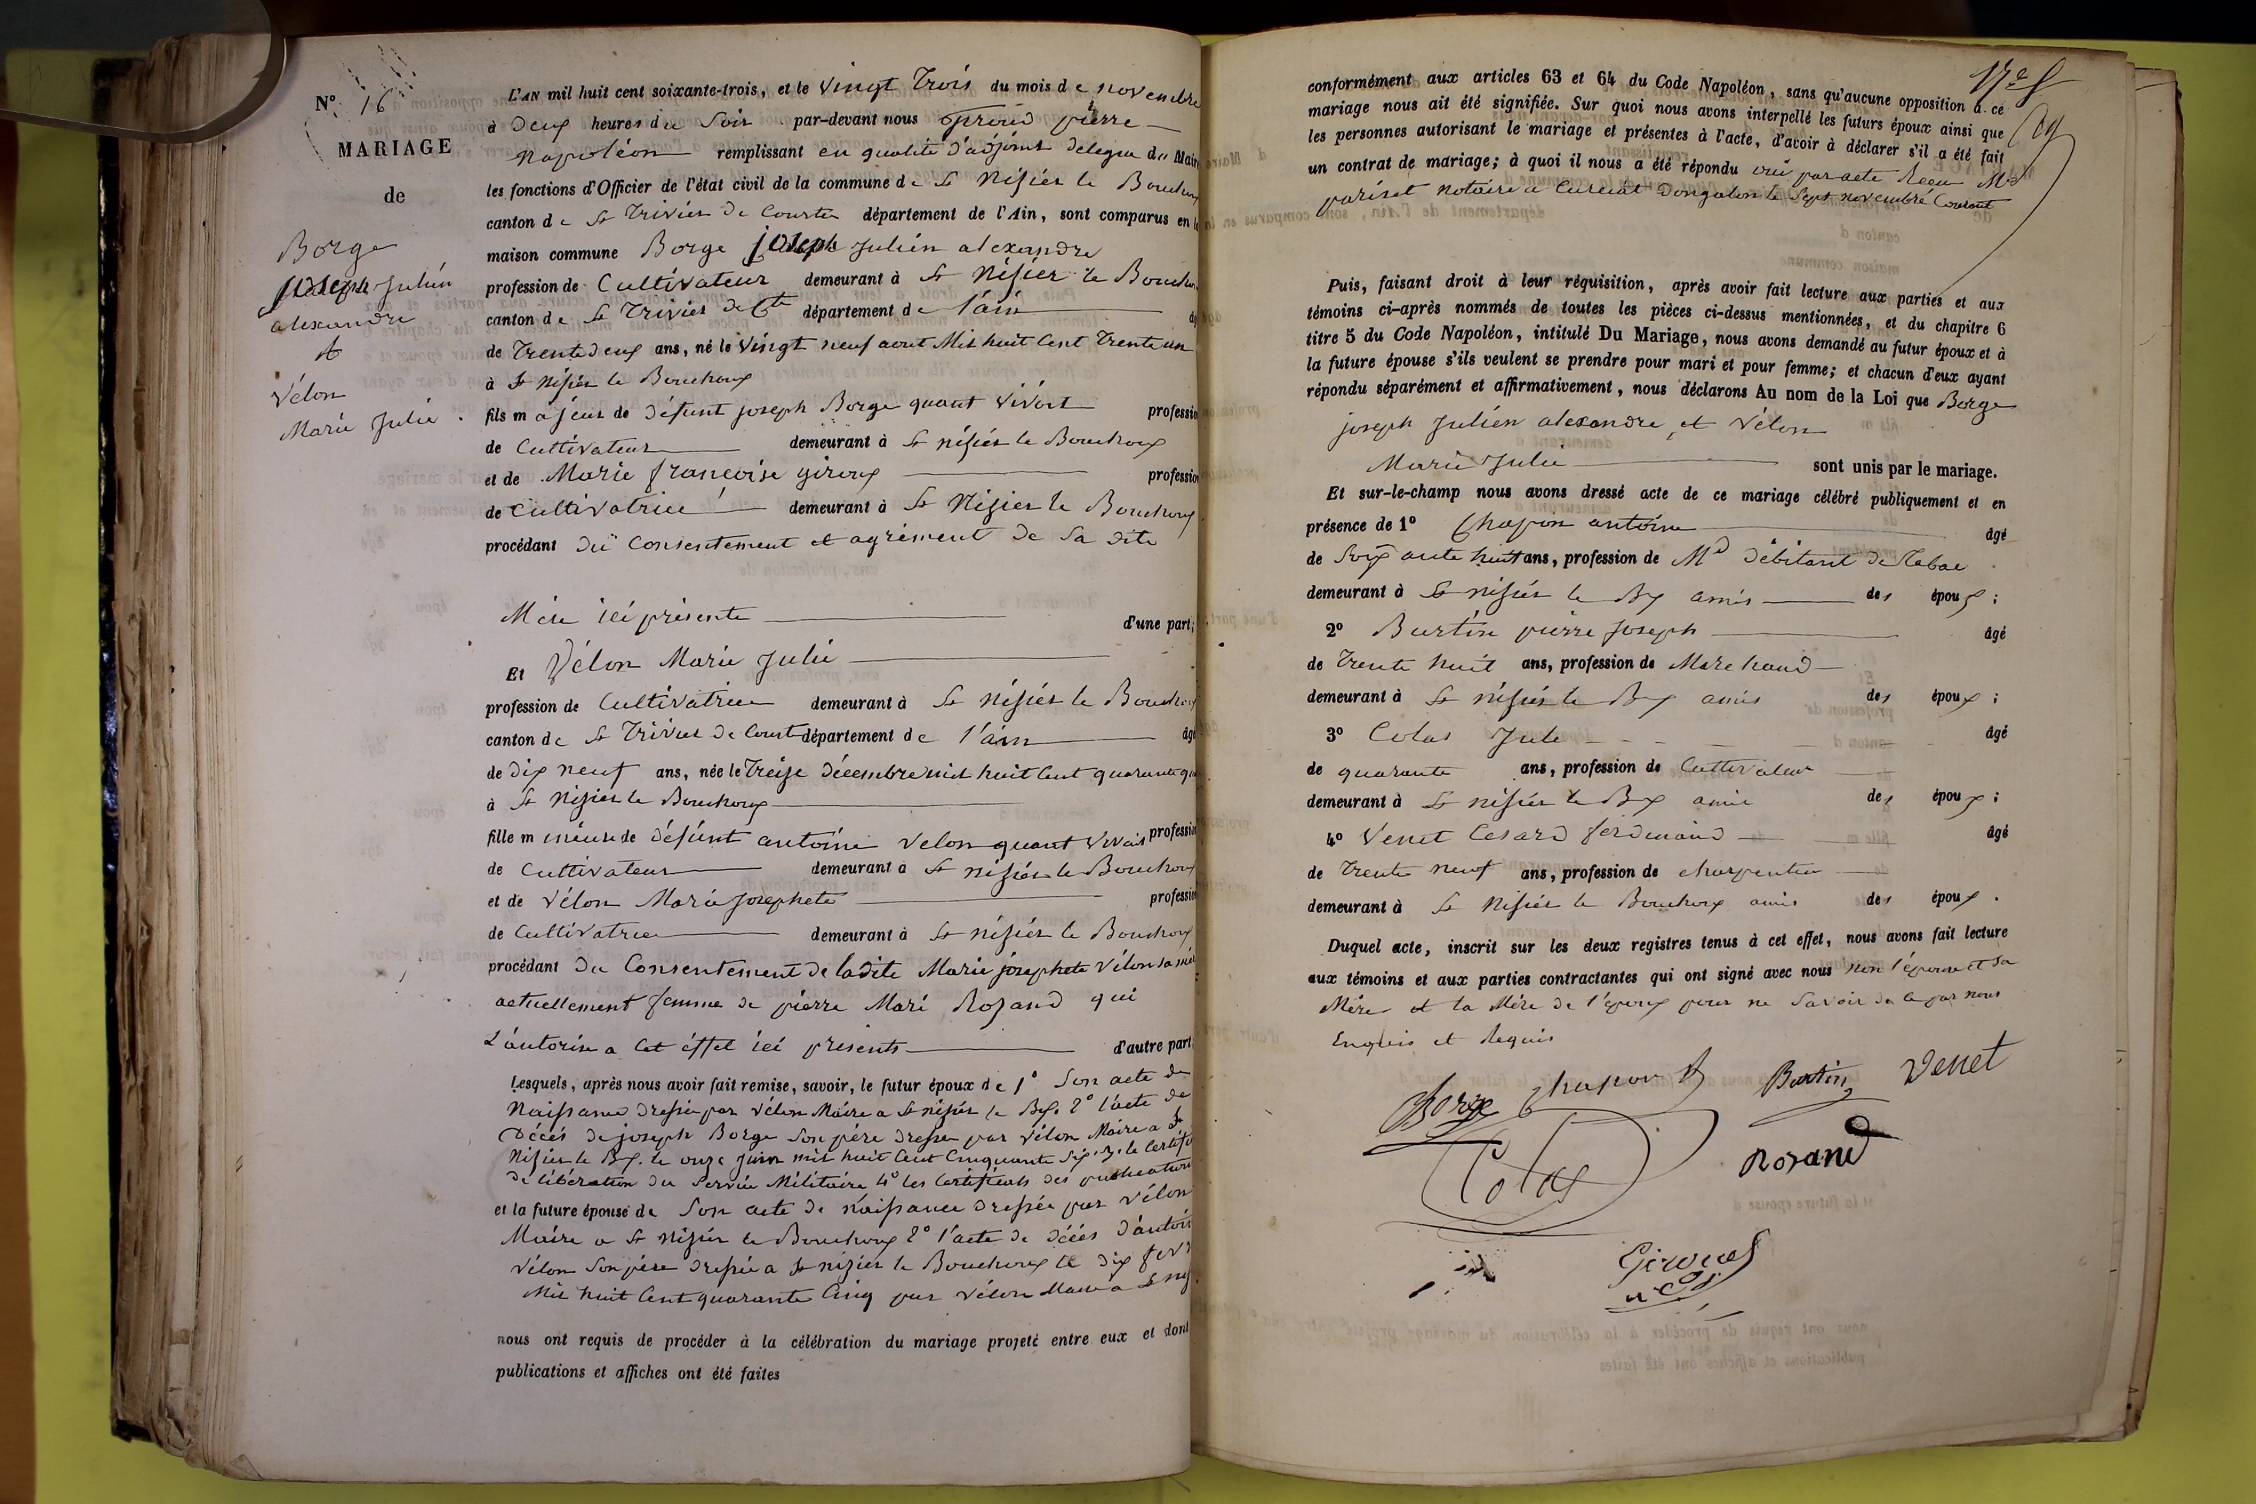 N° 16
MARIAGE
de
Borge
joseph Julien
alexandre
et
Vélon
Marie Julie .
L'AN mil huit cent soixante-trois, et le vingt Trois du mois de novembre
à Deux heures du Soir par-devant nous pierre
Napoléon remplissant en qualité d'adjoint delegue du Maire
les fonctions d'Officier de l'état civil de la commune de St Nisier le Bouchoux
canton de St Trivier de Courtes département de l'Ain, sont comparus en la
maison commune Borge joseph Julien alexandre
profession de Cultivateur demeurant à St Nisier le Bouchoux
canton de St Trivier de Cts département de l'ain âgé
de Trente deux ans, né le Vingt neuf aout Mil huit Cent Trente un
à St Nisier le Bouchoux
fils majeur de défunt joseph Borge quant vivait profession
de Cultivateur demeurant à St nisier le Bouchoux
et de Marie françoise giroux profession
de Cultivatrice demeurant à St Nizier le Bouchoux
procédant du Consentement et agrément de Sa dite
Mère ici présente d'une part;
Et Vélon Marie Julie
profession de Cultivatrice demeurant à St nisier le Bouchoux
canton de St Trivier de Court département de l'ain âgé
de dix neuf ans, née le Treize décembre mil huit Cent quarante
à St Nizier le Bouchoux
fille mineure de défunt antoine Velon quant Vivait profession
de Cultivateur demeurant à St nisier le Bouchoux
et de Vélon Marie Josephete profession
de Cultivatrice demeurant à St nisier le Bouchoux
procédant du Consentement de ladite Marie josephete Vélon sa mère
actuellement femme de pierre Marie Rozand qui
L'autorise a Cet éffet ici présents d'autre part
Lesquels, après nous avoir fait remise, savoir, le futur époux de 1° Son acte de
Naissance dressé par Vélon Maire a St nisier le Bx. 2° l'acte de
Décés de joseph Borge Son père dressé par Vélon Maire a St
Nisier le Bx. le onze juin mil huit Cent Cinquante Six. 3° le Certificat
de libération du Service Militaire 4° les Certificats des publications
et la future épouse de Son acte de naissance dressée par Vélon
Maire a St nisier le Bouchoux 2° l'acte de décés d'antoine
Vélon Son père dressé a St nizier le Bouchoux le dix
Mil huit Cent quarante Cinq par Vélon Maire a St
nous ont requis de procéder à la célébration du mariage projeté entre eux et dont
publications et affiches ont été faites
conformément aux articles 63 et 64 du Code Napoléon, sans qu'aucune opposition à ce
mariage nous ait été signifiée. Sur quoi nous avons interpellé les futurs époux ainsi que
les personnes autorisant le mariage et présentes à l'acte, d'avoir à déclarer s'il a été fait
un contrat de mariage; à quoi il nous a été répondu oui par acte Recu Me
pariset Notaire a Curciat Dongalon le Sept novembre Courant
Puis, faisant droit à leur réquisition, après avoir fait lecture aux parties et aux
témoins ci-après nommés de toutes les pièces ci-dessus mentionnées, et du chapitre 6
titre 5 du Code Napoléon, intitulé Du Mariage, nous avons demandé au futur époux et à
la future épouse s'ils veulent se prendre pour mari et pour femme; et chacun d'eux ayant
répondu séparément et affirmativement, nous déclarons Au nom de la Loi que Borge
joseph Julien alexandre et Vélon
Marie Julie sont unis par le mariage.
Et sur-le-champ nous avons dressé acte de ce mariage célébré publiquement et en
présence de 1° Chapon antoine âgé
de Soixante huit ans, profession de Md débitant de Tabac
demeurant à St nisier le Bx amis des époux ;
2° Burtin pierre Joseph âgé
de Trente huit ans, profession de Marchand
demeurant à St nisier le Bx amis des époux ;
3° Colas Jule âgé
de quarante ans, profession de Cultivateur
demeurant à St nisier le Bx amis des époux ;
4° Venet Cesard ferdinand âgé
de Trente neuf ans, profession de charpentier
demeurant à St Nisier le Bouchoux amis des époux .
Duquel acte, inscrit sur les deux registres tenus à cet effet, nous avons fait lecture
aux témoins et aux parties contractantes qui ont signé avec nous non l'épouse et sa
Mère et la Mère de l'époux pour ne Savoir de ce par nous
Enquis et Requis
Borge Chapon Burtin Venet
Colas Rozand